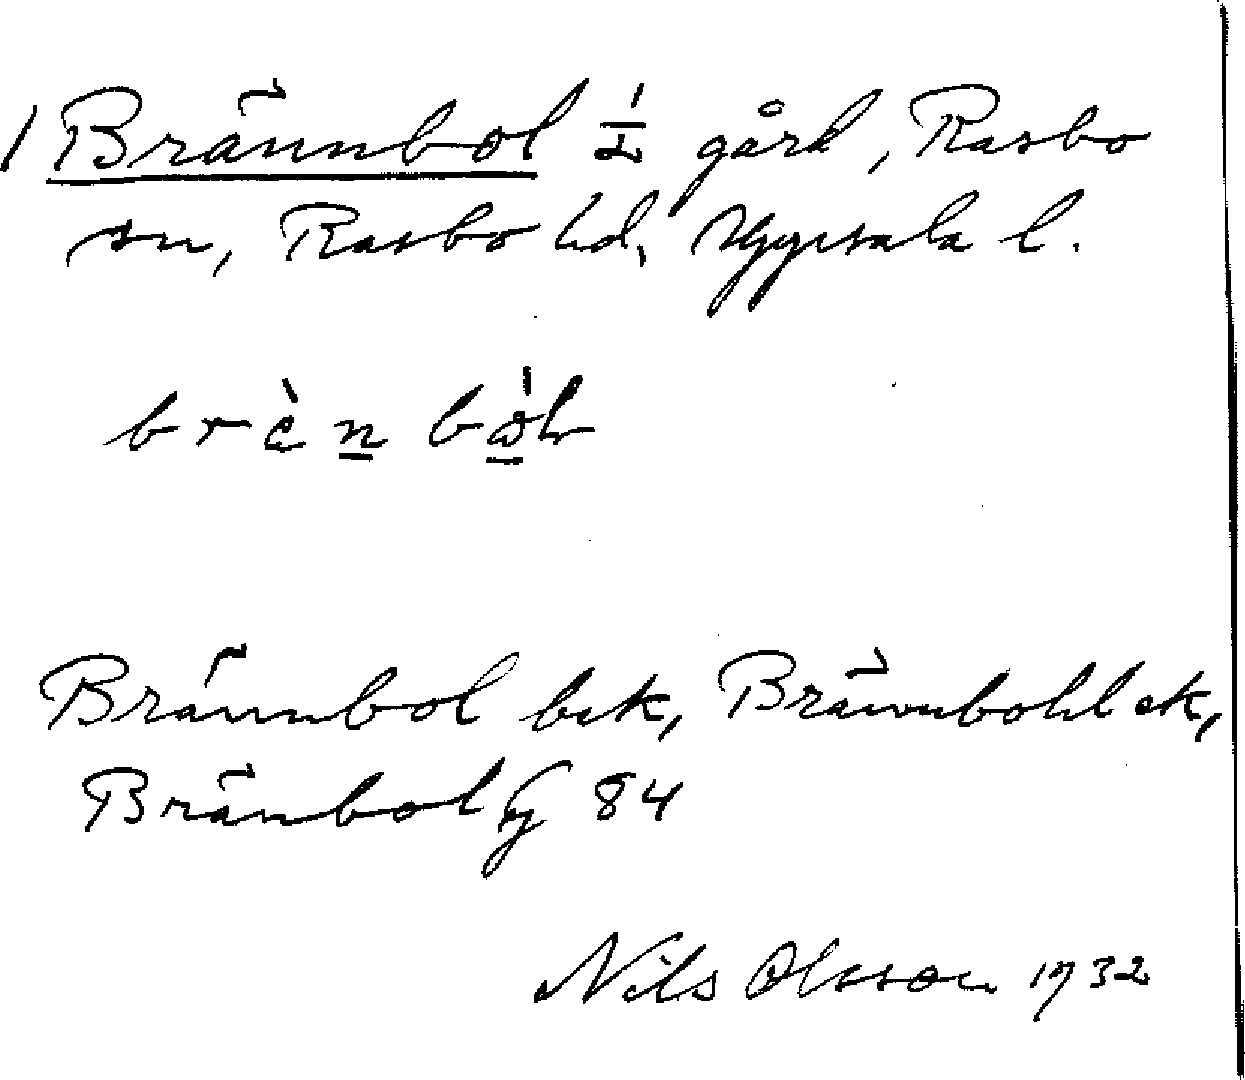 1 Brännbol ½ gård, Rasbo
sn, Rasbo hd, Uppsala l.
brèn bòl
Brännbol bek, Brännbohl ek,
Bränbol G 84
Nils Olsson 1932